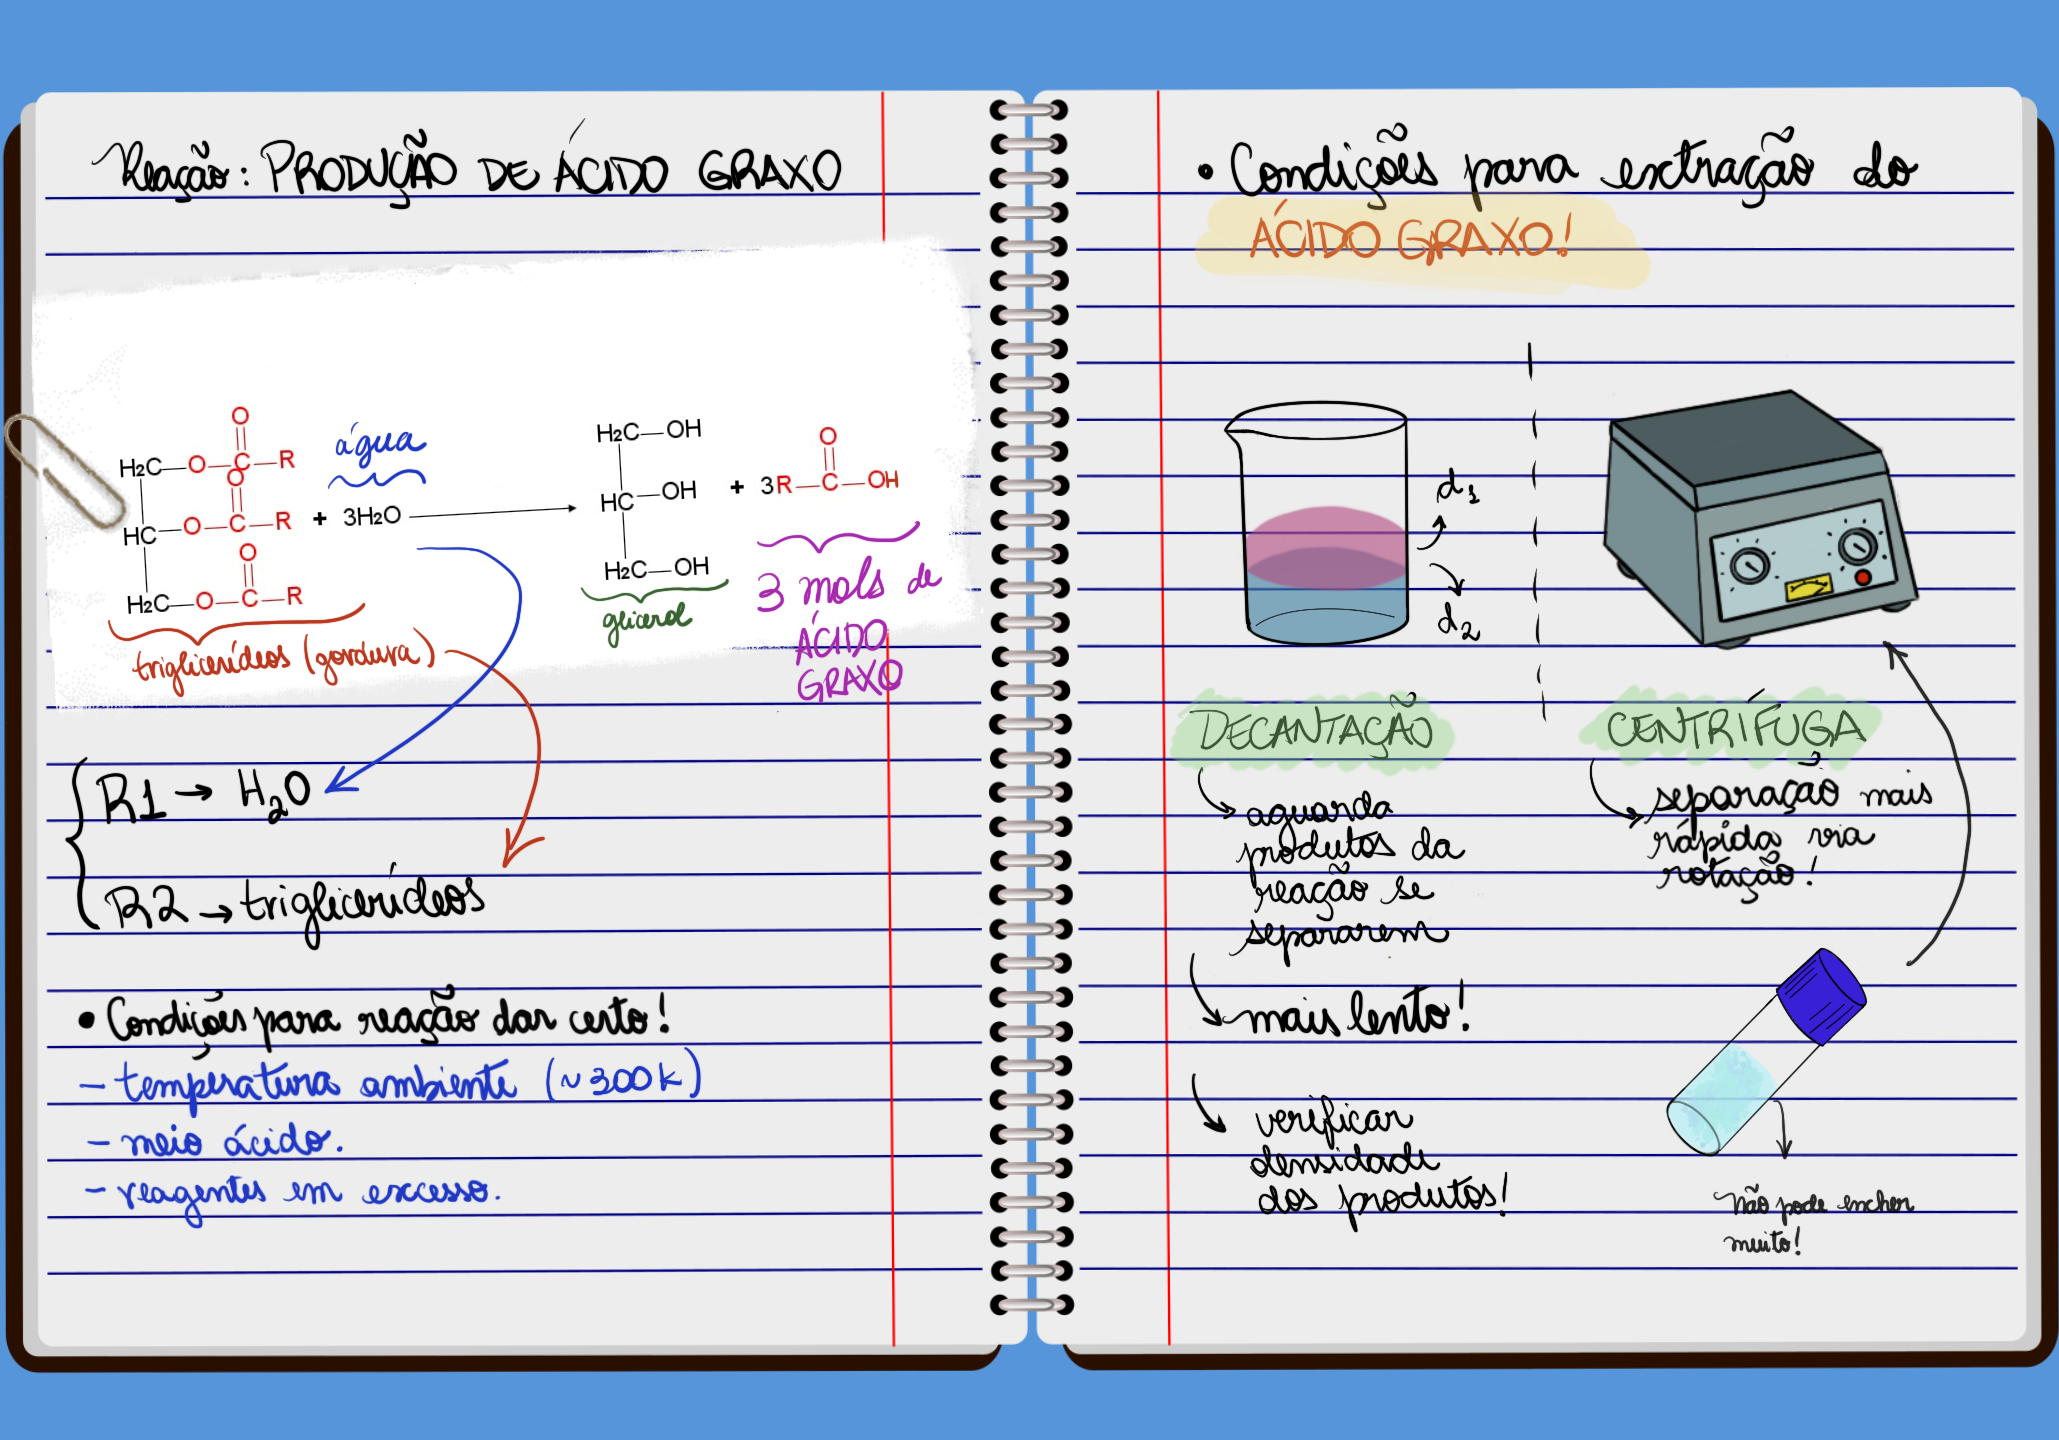 Reação: PRODUÇÃO DE ÁCIDO GRAXO
O
H2C—O—C—R
água
O
HC—O—C—R + 3H2O
O
H2C—O—C—R
triglicerídeos (gordura)
H2C—OH
HC—OH
H2C—OH
glicerol
O
+ 3R—C—OH
3 mols de
ÁCIDO
GRAXO
R1 → H2O
R2 → triglicerídeos
• Condições para reação dar certo!
- temperatura ambiente (~300K)
- meio ácido.
- reagentes em excesso.
• Condições para extração do
ÁCIDO GRAXO!
d1
d2
DECANTAÇÃO
aguarda
produtos da
reação se
separarem
mais lento!
verificar
densidade
dos produtos!
CENTRÍFUGA
separação mais
rápida via
rotação!
Não pode encher
muito!